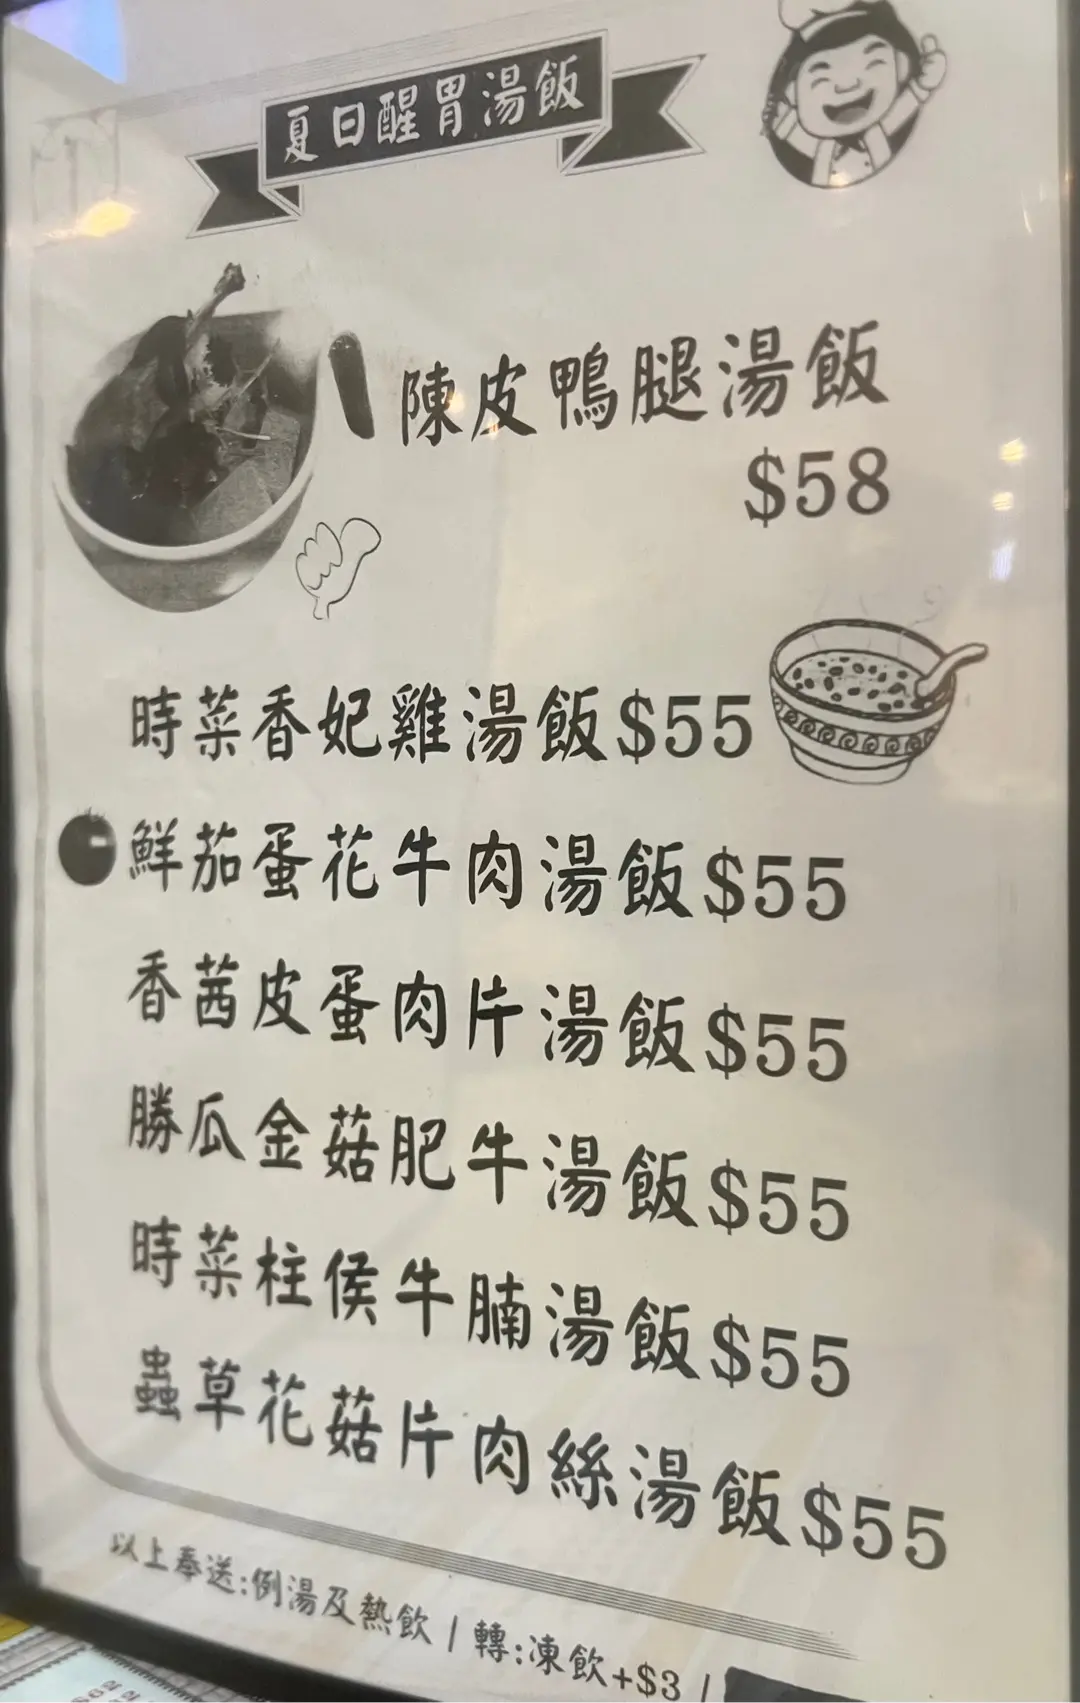 夏日醒胃湯飯
陳皮鴨腿湯飯
$58
時菜香妃雞湯飯$55
鮮茄蛋花牛肉湯飯$55
香茜皮蛋肉片湯飯$55
勝瓜金菇肥牛湯飯$55
時菜柱侯牛腩湯飯$55
蟲草花菇片肉絲湯飯$55
以上奉送:例湯及熱飲 / 轉:凍飲+$3 /